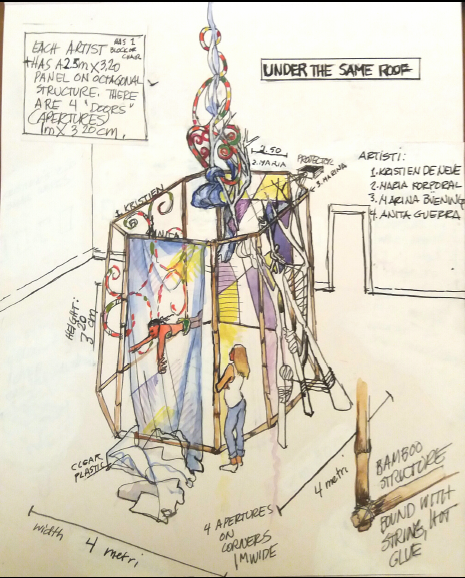 EACH ARTIST HAS 1
BLOCK OR
CHAIR
HAS A 2.5m X 3.20
PANEL ON OCTAGONAL
STRUCTURE. THERE
ARE 4 "DOORS"
(APERTURES)
1m X 3.20 cm.
UNDER THE SAME ROOF
2.50
2. MARIA
PROTECTOR
3. MARINA
ARTISTI:
1. KRISTIEN DE NEVE
2. MARIA KORPORAL
3. MARINA BUENING
4. ANITA GUERRA
1. KRISTIEN
ANITA
HEIGHT:
3.20
cm
CLEAR
PLASTIC
width
4 metri
4 APERTURES
ON
CORNERS
1M WIDE
4 metri
BAMBOO
STRUCTURE
BOUND WITH
STRING, HOT
GLUE